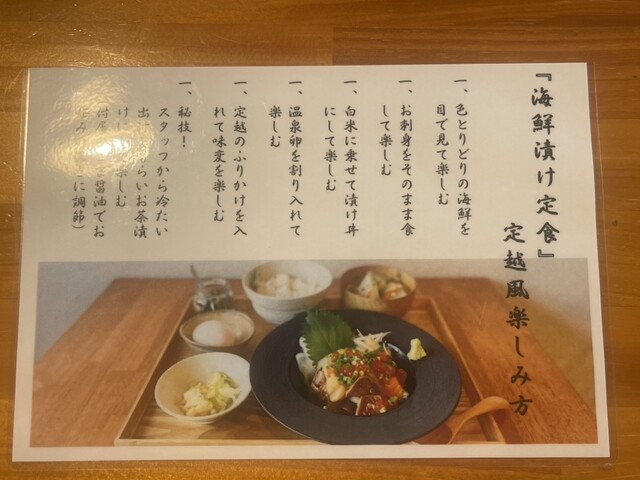 『海鮮漬け定食』
定越風楽しみ方
一、色とりどりの海鮮を
目で見て楽しむ
一、お刺身をそのまま食
して楽しむ
一、白米に乗せて漬け丼
にして楽しむ
一、温泉卵を割り入れて
楽しむ
一、定越のふりかけを入
れて味変を楽しむ
一、秘技！
スタッフから冷たい
出 らいお茶漬
け 楽しむ
醤油でお
に調節）